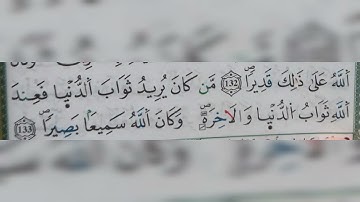 ٱللَّهُ عَلَىٰ ذَٰلِكَ قَدِيرًا ۝١٣٢ مَّن كَانَ يُرِيدُ ثَوَابَ ٱلدُّنْيَا فَعِندَ
ٱللَّهِ ثَوَابُ ٱلدُّنْيَا وَٱلْأَخِرَةِ وَكَانَ ٱللَّهُ سَمِيعًا بَصِيرًا ۝١٣٣